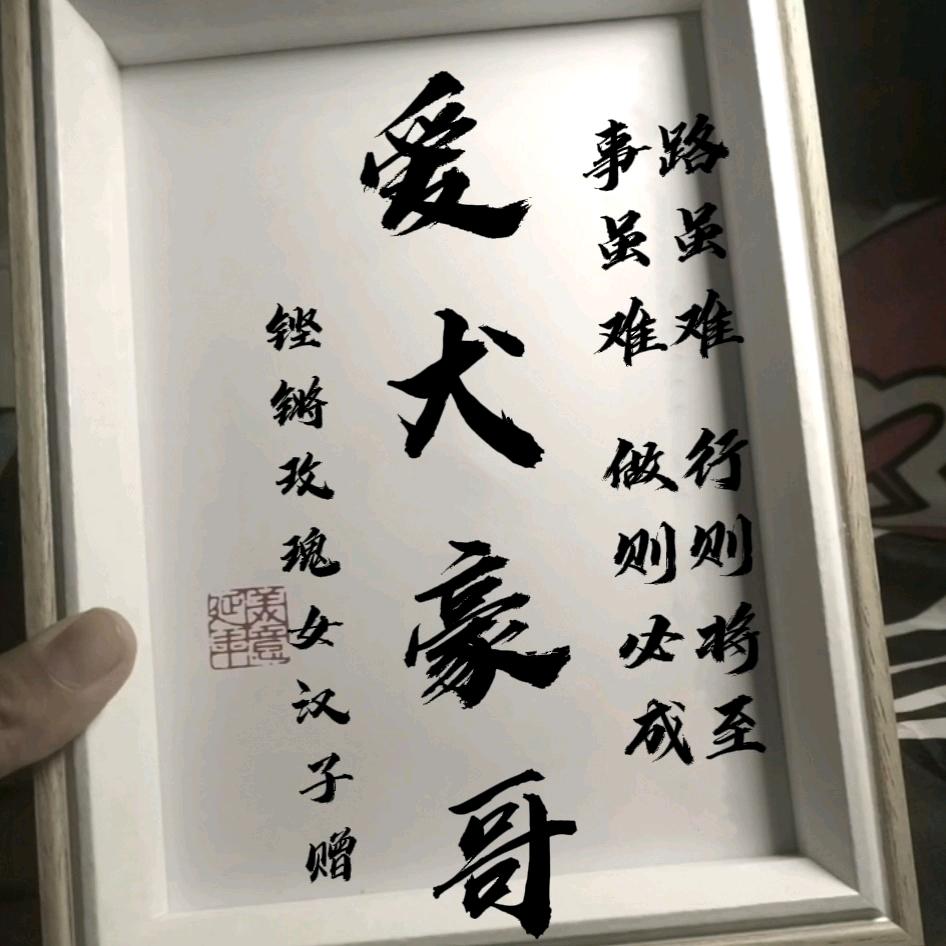 路虽难 行则将至
事虽难 做则必成
爱犬豪哥
铿锵玫瑰女汉子赠
美意延年